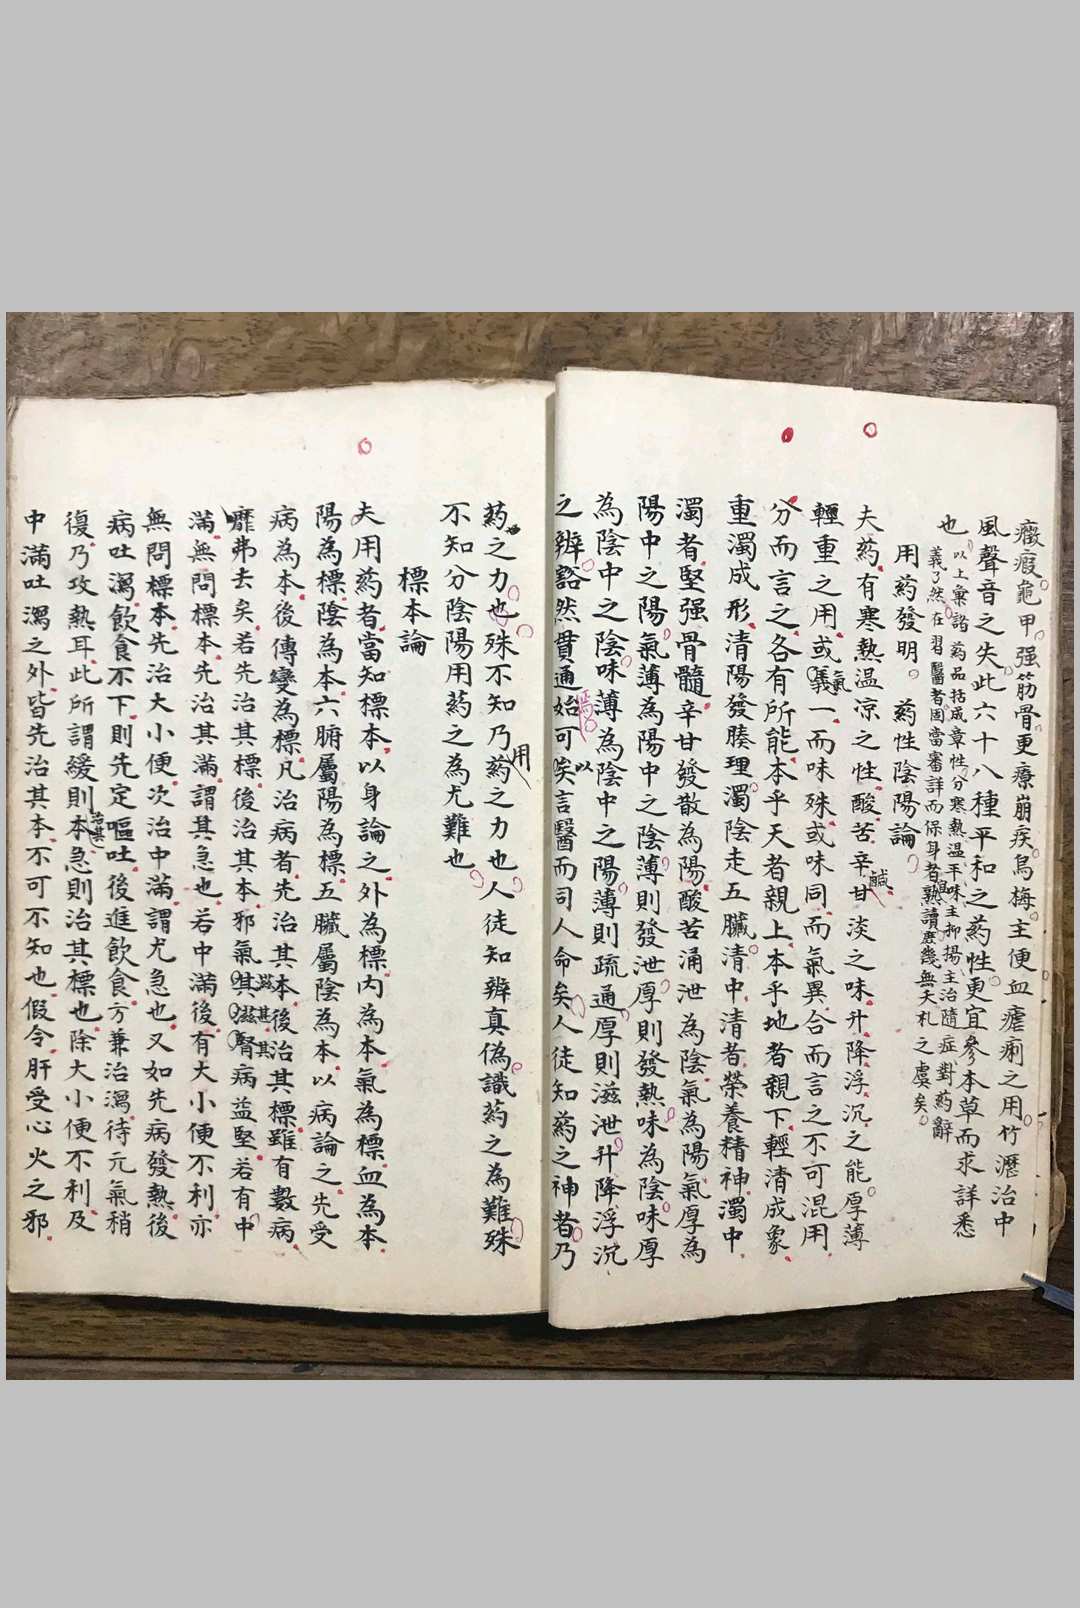 癥瘕龜甲强筋骨更療崩疾烏梅主便血瘧痢之用竹瀝治中
風聲音之失此六十八種平和之葯性更宜參本草而求詳悉
也以上彙諧葯品括成章性分寒熱温平味主抑揚主治隨症對葯辭
義了然在習醫者固當審詳而保身者俱熟讀庶幾無夭札之虞矣
用葯發明 葯性陰陽論
夫葯有寒熱温凉之性酸苦辛鹹甘淡之味升降浮沉之能厚薄
輕重之用或氣義一而味殊或味同而氣異合而言之不可混用
分而言之各有所能本乎天者親上本乎地者親下輕清成象
重濁成形清陽發腠理濁陰走五臟清中清者榮養精神濁中
濁者堅强骨髓辛甘發散為陽酸苦涌泄為陰氣為陽氣厚為
陽中之陽氣薄為陽中之陰薄則發泄厚則發熱味為陰味厚
為陰中之陰味薄為陰中之陽薄則疏通厚則滋泄升降浮沉
之辨豁然貫通焉始可以矣言醫而司人命矣人徒知葯之神者乃
葯之力也殊不知乃用葯之力也人徒知辨真偽識葯之為難殊
不知分陰陽用葯之為尤難也
標本論
夫用葯者當知標本以身論之外為標内為本氣為標血為本
陽為標陰為本六腑屬陽為標五臟屬陰為本以病論之先受
病為本後傳變為標凡治病者先治其本後治其標雖有數病
靡弗去矣若先治其標後治其本邪氣滋甚其其滋腎病益堅若有中
滿無問標本先治其滿謂其急也若中滿後有大小便不利亦
無問標本先治大小便次治中滿謂尤急也又如先病發熱後
病吐瀉飲食不下則先定嘔吐後進飲食方兼治瀉待元氣稍
復乃攻熱耳此所謂緩則治其本急則治其標也除大小便不利及
中滿吐瀉之外皆先治其本不可不知也假令肝受心火之邪